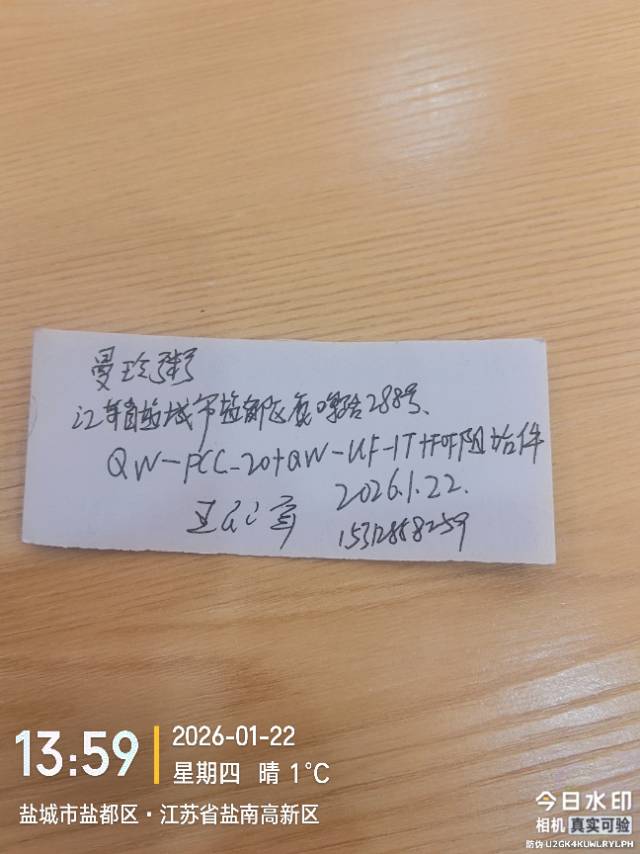 曼玲粥
江苏省盐城市盐都区鹿鸣路288号、
QW-PCC-20+QW-UF-1T+阻垢件
2026.1.22.
15312888259
13:59
2026-01-22
星期四 晴 1°C
盐城市盐都区·江苏省盐南高新区
今日水印
相机 真实可验
防伪 U2GK4KUWLRYLPH